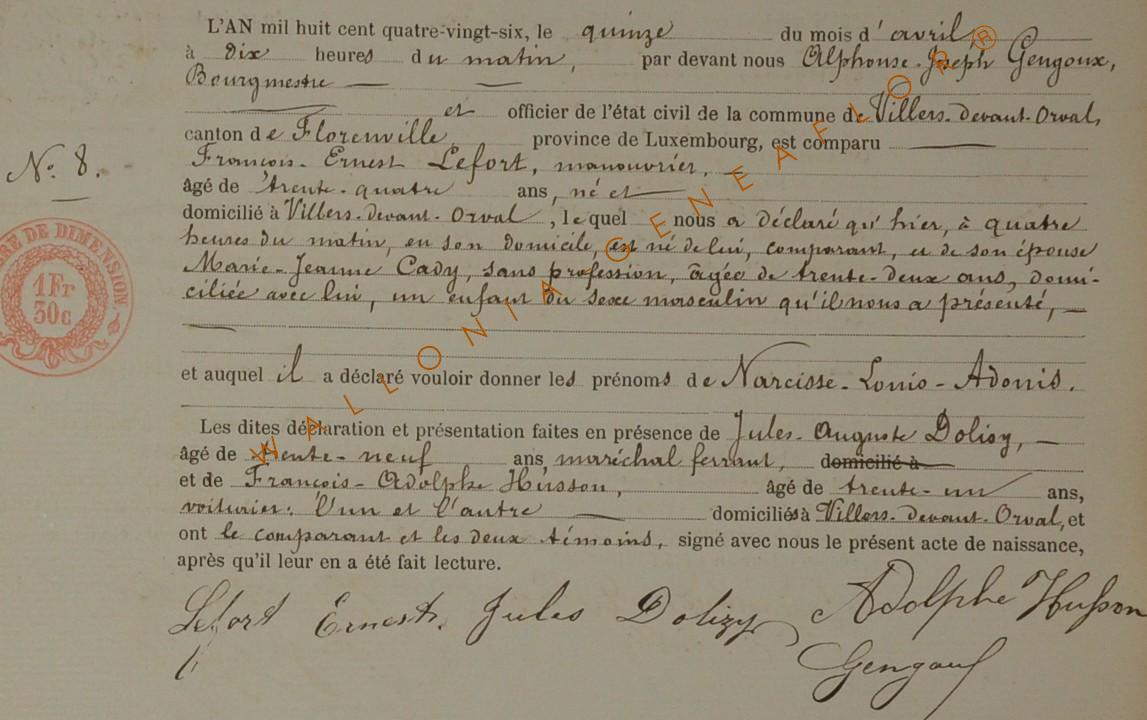 L'AN mil huit cent quatre-vingt-six, le quinze du mois d'avril,
à dix heures du matin, par devant nous Alphonse-Joseph Gengoux,
Bourgmestre
et officier de l'état civil de la commune de Villers-devant-Orval,
canton de Florenville province de Luxembourg, est comparu
François-Ernest Lefort, manouvrier,
N° 8.
âgé de trente-quatre ans, né et
domicilié à Villers-devant-Orval, lequel nous a déclaré qu'hier, à quatre
heures du matin, en son domicile, est né de lui, comparant, et de son épouse
Marie-Jeanne Cady, sans profession, âgée de trente-deux ans, domi-
ciliée avec lui, un enfant du sexe masculin qu'il nous a présenté,
RE DE DIMENSION
1 Fr
30c
et auquel il a déclaré vouloir donner les prénoms de Narcisse-Louis-Adonis.
Les dites déclaration et présentation faites en présence de Jules-Auguste Dolisy,
âgé de trente-neuf ans, maréchal ferrant, domicilié à
et de François-Adolphe Husson, âgé de trente-un ans,
voiturier: l'un et l'autre domiciliés à Villers-devant-Orval, et
ont le comparant et les deux témoins, signé avec nous le présent acte de naissance,
après qu'il leur en a été fait lecture.
Lefort Ernest. Jules Dolizy Adolphe Husson
Gengoux
WALLONIA GENEAFLOR®